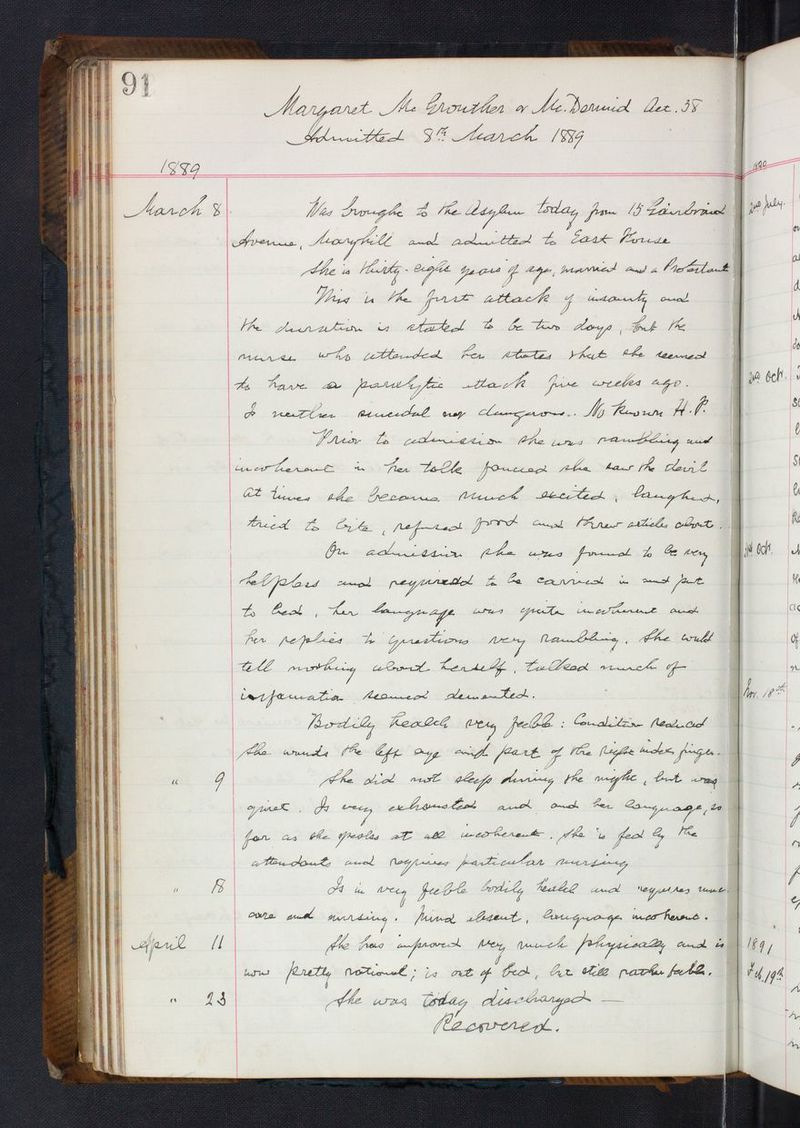 91
Margaret McGrouther or McDermid Aet. 38
Admitted 8th March 1889
1889
March 8 Was brought to the Asylum today from 15 Gairbraid
Avenue, Maryhill and admitted to East House
She is thirty-eight years of age, married and a Protestant
This is the first attack of insanity and
the duration is stated to be two days, but the
nurse who attended her states that she seemed
to have a paralytic attack five weeks ago.
Is neither suicidal nor dangerous. No known H. P.
Prior to admission she was rambling and
incoherent in her talk fancied she saw the devil
at times she became much excited, laughed,
tried to bite, refused food and threw articles about.
On admission she was found to be very
helpless and required to be carried in and put
to bed, her language was quite incoherent and
her replies to questions very rambling. She could
tell nothing about herself, talked much of
seemed demented.
Bodily health very feeble: Condition reduced
She wants the left eye and part of the right index finger.
" 9 She did not sleep during the night, but was
quiet. Is very exhausted and and her language, so
far as she speaks at all incoherent. She is fed by the
attendants and requires particular nursing
" 18 Is in very feeble bodily health and requires much
care and nursing. Mind absent, language incoherent.
April 11 She has improved very much physically and is
now pretty rational; is out of bed, but still rather feeble.
" 23 She was today discharged —
Recovered.
2nd July.
2nd Oct.
Oct.
Nov. 18th
1891
Feb. 19th